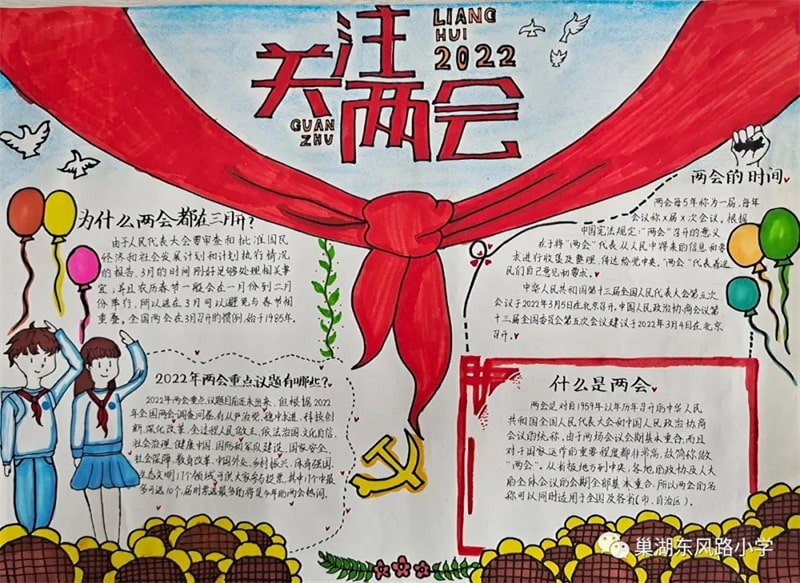 LIANG
HUI
2022
关注
两会
GUAN
ZHU
为什么两会都在三月开?
由于人民代表大会要审查和批准国民
经济和社会发展计划和计划执行情况
的报告,3月的时间刚好足够处理相关事
宜;并且农历春节一般会在一月份到二月
份举行,所以选在3月可以避免与春节相
重叠。全国两会在3月召开的惯例,始于1985年。
两会的时间
两会每5年称为一届,每年
会议称x届x次会议。根据
中国宪法规定:“两会”召开的意义
在于将“两会”代表从人民中得来的信息和要
求进行收集及整理,传达给党中央。“两会”代表着选
民们自己意见和要求。
中华人民共和国第十三届全国人民代表大会第五次
会议于2022年3月5日在北京召开,中国人民政治协商会议第
十三届全国委员会第五次会议建议于2022年3月4日在北京
召开。
2022年两会重点议题有哪些?
2022年两会重点议题目前还未出来,但根据2022
年全国两会调查问卷,有从严治党、稳中求进、科技创
新、深化改革、全过程人民民主、依法治国、文化自信、
社会治理、健康中国、国防和军队建设、国家安全、
社会保障、教育改革、中国外交、乡村振兴、体育强国、
生态文明17个领域
可选10个,届时票选最多的将是今年的两会热词。
什么是两会
两会是对自1959年以年历召开的中华人民
共和国全国人民代表大会和中国人民政治协商
会议的统称。由于两场会议会期基本重合,而且
对于国家运作的重要程度都非常高,故简称做
“两会”。从省级地方到中央,各地的政协及人大
的全体会议的会期全部基本重合,所以两会的名
称可以同时适用于全国及各省(市、自治区)。
巢湖东风路小学